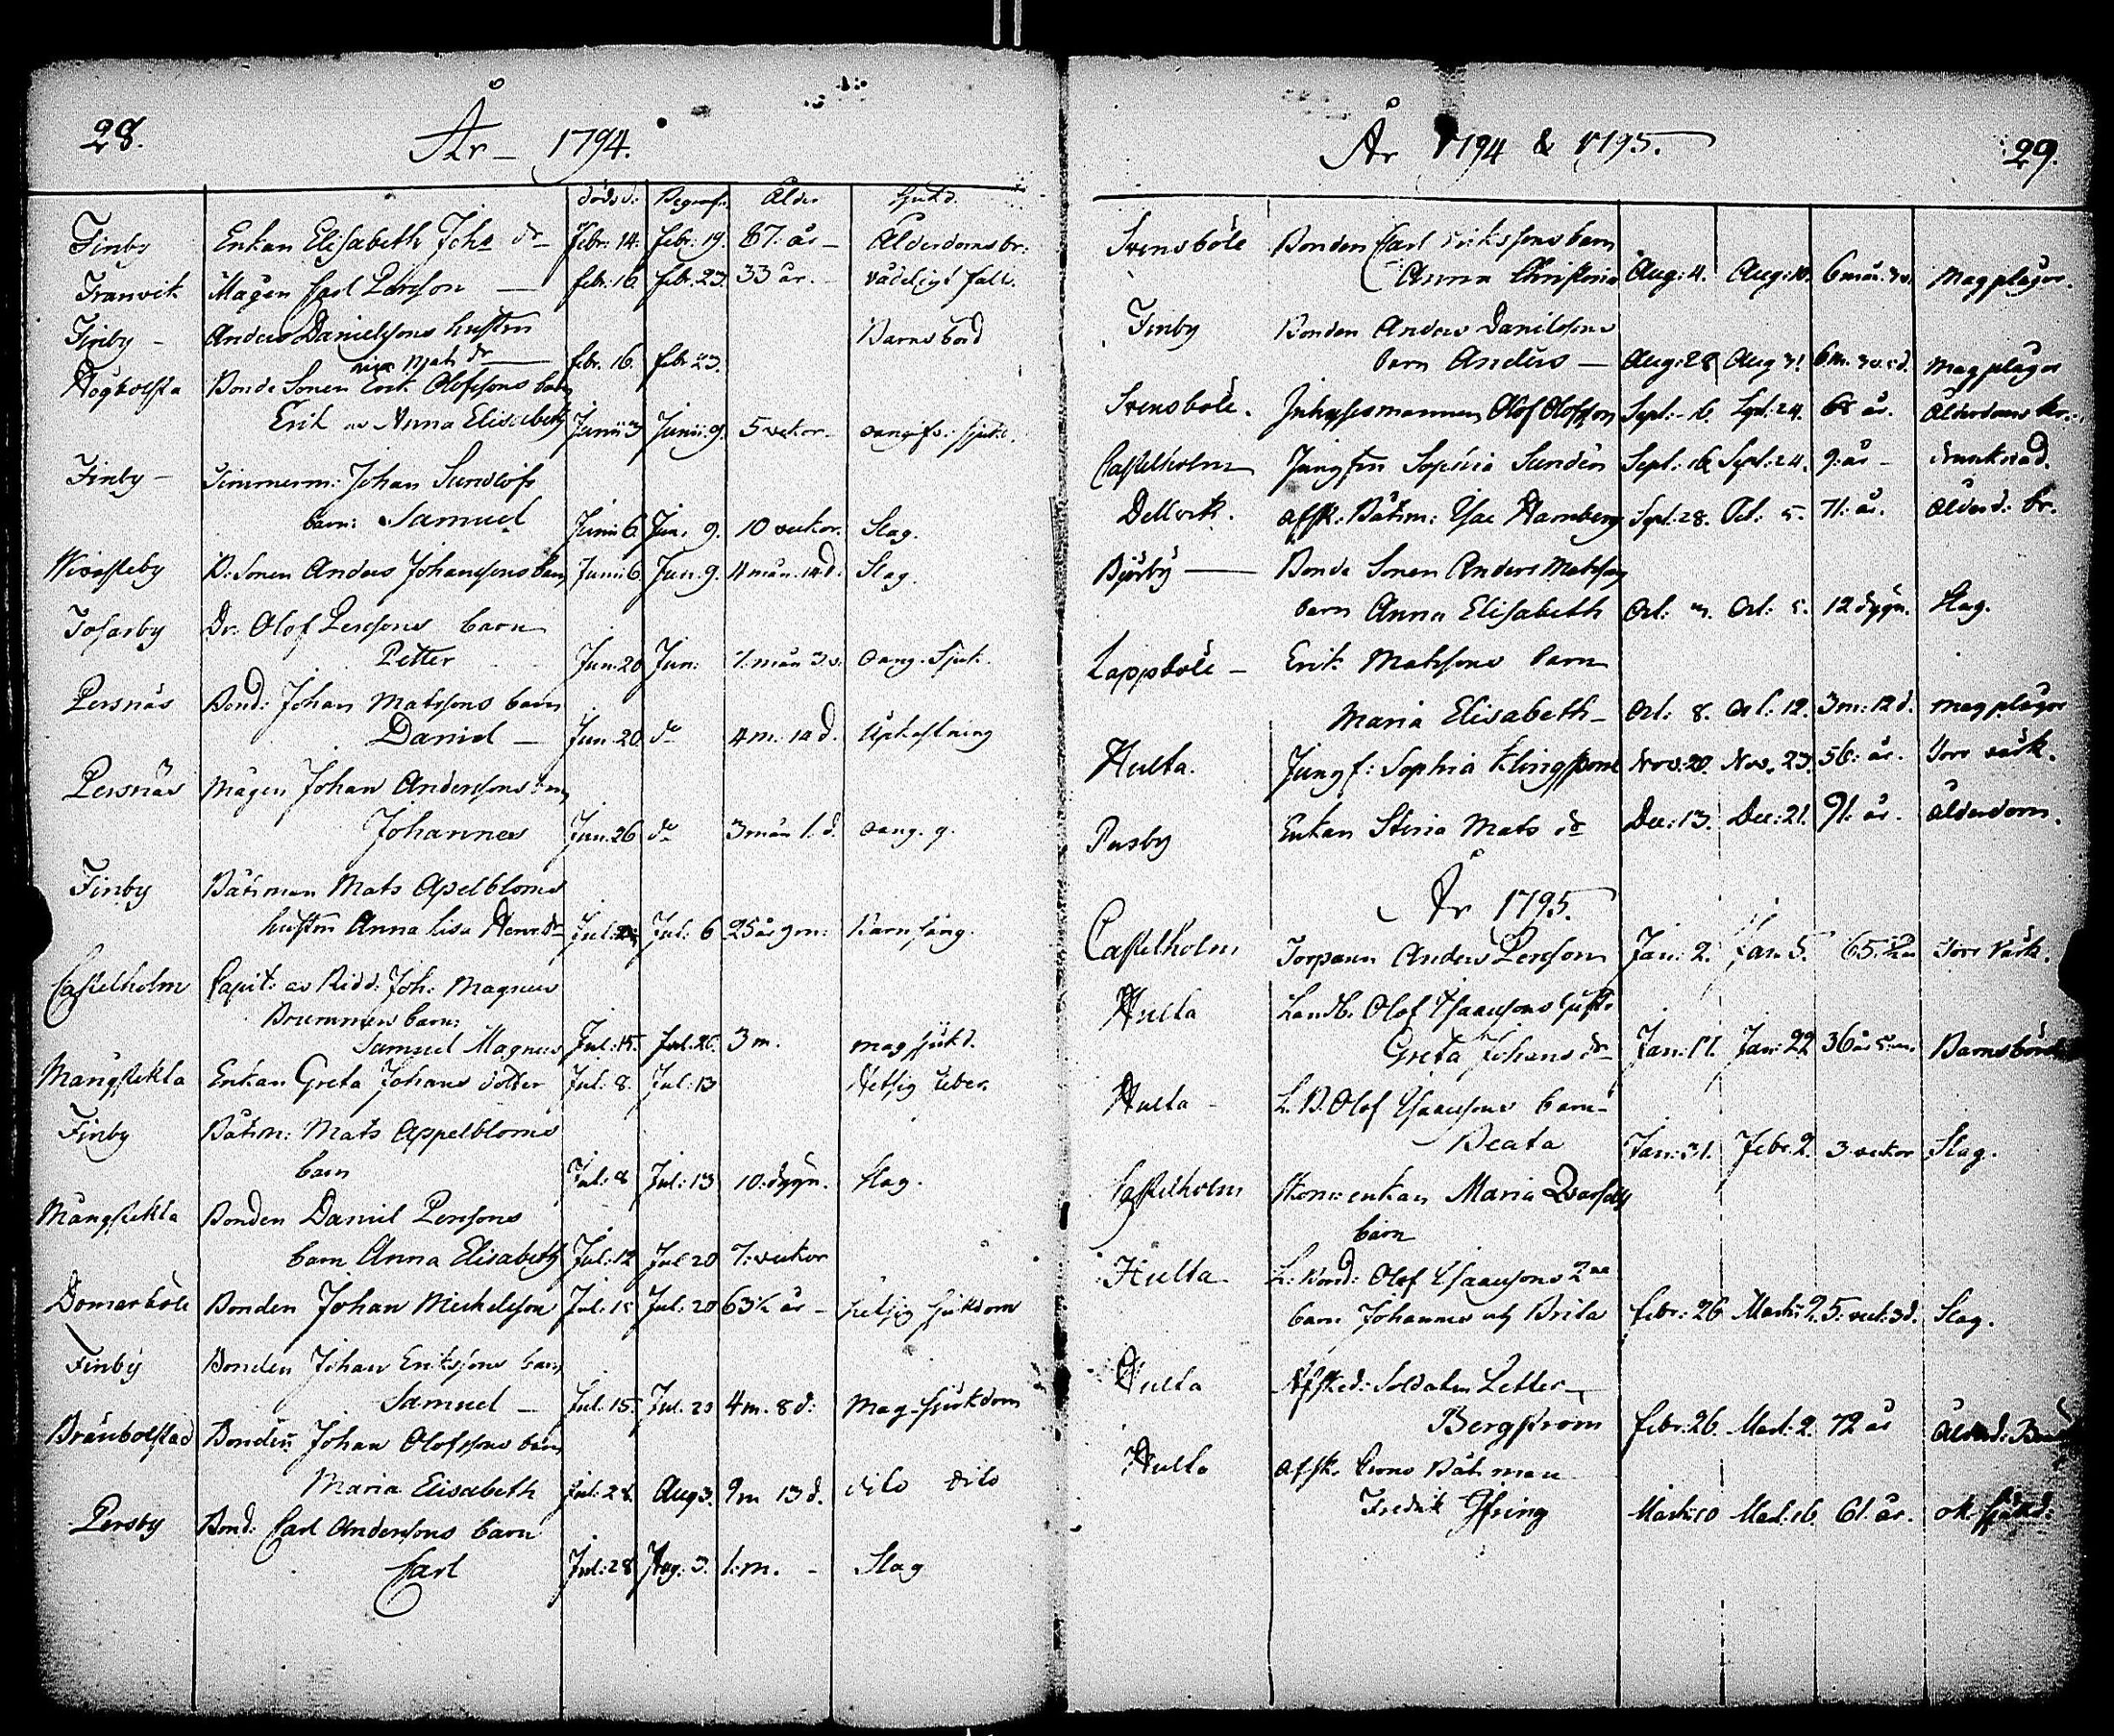 28.
År 1794.
dödsd: Begrafn. Ålder Sjukd.
Finby Enkan Elisabeth Johs dr Febr: 14. Febr: 19. 87. år Ålderdomsbr:
Tranvik Mågen Carl Persson febr: 16. febr: 23. 33 år. vådeligt fall.
Finby Anders Danielssons hustru Barnsbörd
Mats dr febr. 16. febr 23.
Högbolsta Bonde Sonen Erik Olofssons barn
Erik av Anna Elisabeth Junii 3 Junii: 9. 5 vekor
Finby Timmerm: Johan Sundlöfs
barn: Samuel Junii 6 Jun. 9. 10 vekor. Slag.
Wivasteby B. Sonen Anders Johanssons barn Junii 6 Jun. 9. 4 mån. 14 d. Slag.
Tosarby Dr. Olof Perssons barn
Petter Jun: 20 Jun: 7. mån 3 v. Sjuk.
Persnäs Bond: Johan Matssons barn
Daniel Jun. 20. do 4 m. 14 d. Upkastning
Persnäs Mågen Johan Anderssons barn
Johannes Jun. 26 do 3 mån 1. d.
Finby Båtsman Mats Apelbloms
hustru Anna Lisa Henr: dr Jul: Jul: 6 25 år 9 m: Barnsäng.
Castelholm Capit: av Ridd: Joh: Magnus
Brummers barn:
Samuel Magnus Jul: 15. Jul. 26. 3 m. magsjukd.
Mångstekta Enkan Greta Johans dotter Jul: 8. Jul: 13 Hetsig feber.
Finby Båtsm: Mats Appelbloms
barn Jul: 8 Jul: 13 10: dygn. Slag.
Mångstekta Bonden Daniel Perssons
barn Anna Elisabeth Jul: 12 Jul 20 7: vekor
Domarböle Bonden Johan Michelsson Jul: 15 Jul: 20 63 1/2 år hetsig sjukdom
Finby Bonden Johan Erikssons barn
Samuel Jul: 15. Jul. 20 4 m. 8 d: Mag-sjukdom
Bränbolstad Bonden Johan Olofssons barn
Maria Elisabeth Jul: 28. Aug 3. 9 m 13 d. dito dito
Persby Bond: Carl Anderssons barn
Carl Jul: 28 Aug. 3. 1. m. Slag
29.
År 1794 & 1795.
Svensböle Bonden Carl Erikssons barn
Anna Christina Aug: 4. Aug: 10. 6 mån. 3 v. Magplågor.
Finby Bonden Anders Danielssons
barn Anders Aug: 28 Aug 31 6 m. 3 v. magplågor
Svensböle. Inhysesmannen Olof Olofsson Sept: 16. Sept: 24. 68 år. Ålderdoms br:
Castelholm Jungfru Sophia Sundén Sept: 16 Sept: 24. 9: år drunknad.
Dellvik. Afsk: Båtsm: Isac Hamberg Sept: 28. Oct: 5. 71. år. Ålderd: br.
Björby Bonde Sonen Anders Matssons
barn Anna Elisabeth Oct: Oct: 5. 12 dygn. Slag.
Lappböle Erik Matssons barn
Maria Elisabeth Oct: 8. Oct: 12. 3 m: 12 d. magplågor
Hulta. Jungf: Sophia Klingspone Nov: 20. Nov. 23. 56: år. Torr värk.
Persby Enkan Stina Mats dr Dec: 13. Dec: 21. 91. år. Ålderdom.
År 1795.
Castelholm Torparen Anders Persson Jan: 2. Jan: 5. 65. Torr värk.
Hulta Landb. Olof Isacssons hustr.
Greta Johans dr Jan: 17. Jan: 22 36 år Barnsbörd
Hulta L. B. Olof Isacssons barn
Beata Jan: 31. Febr: 2. 3 vekor Slag.
Castelholm enkan Maria
barn
Hulta L: Bond: Olof Isacssons 2ne
barn Johannes och Brita febr: 26 Martii 2. 5: vek: 3 d. Slag.
Hulta Afsked: Soldaten Petter
Bergström febr: 26. Mart: 2. 72 år
Hulta afsk. Båtsman
Fredrik Martii: 10 Mart: 16. 61. år. ok. sjukd: